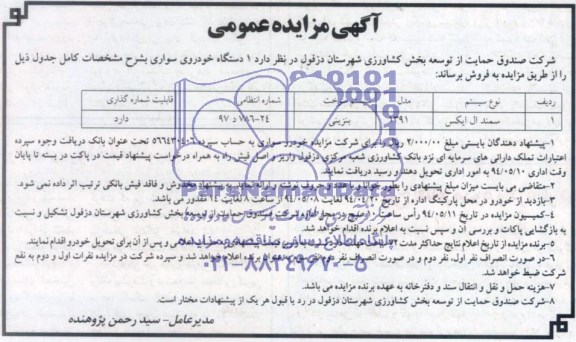 آگهی مزایده عمومی
شرکت صندوق حمایت از توسعه بخش کشاورزی شهرستان دزفول در نظر دارد ۱ دستگاه خودروی سواری بشرح مشخصات کامل جدول ذیل
را از طریق مزایده به فروش برساند:
ردیف نوع سیستم مدل سوخت شماره انتظامی قابلیت شماره گذاری
۱ سمند ال ایکس ۱۳۹۱ بنزینی ۲۴-۷۸۶ ۹۷ دارد
۱-پیشنهاد دهندگان بایستی مبلغ ۲/۰۰۰/۰۰۰ ریال برای شرکت مزایده خودرو سواری به حساب سپرده ۵۶۶۴۳۰۴۰۶ تحت عنوان بانک دریافت وجوه سپرده
اعتبارات تملک دارائی های سرمایه ای نزد بانک کشاورزی شعبه مرکزی دزفول واریز و اصل فیش راه به همراه درخواست پیشنهاد قیمت در پاکت در بسته تا پایان
وقت اداری ۹۴/۰۵/۱۰ به امور اداری تحویل دهند و رسید دریافت نمایند.
۲-متقاضی می بایست میزان مبلغ پیشنهادی را بطور و فاقد فیش بانکی ترتیب اثر داده نمی شود.
۳-بازدید از خودرو در محل پارکینگ اداره از تاریخ لغایت ۹۴/۰۵/۰۸ از ساعت ۸ لغایت ۱۴ مقدور می باشد.
۴-کمیسیون مزایده در تاریخ ۹۴/۰۵/۱۱ رأس ساعت ۱۰ صبح در محل اداره شرکت صندوق حمایت از توسعه بخش کشاورزی شهرستان دزفول تشکیل و نسبت
به بازگشایی پاکات و بررسی آن و سپس نسبت به اعلام برنده اقدام خواهد شد.
۵-برنده مزایده از تاریخ اعلام نتایج حداکثر مدت و پس از آن برای تحویل خودرو اقدام نمایند.
۶-در صورت انصراف نفر اول، نفر دوم و در صورت انصراف نفر دوم برنده اعلام خواهد شد و سپرده شرکت در مزایده نفرات اول و دوم به نفع
شرکت ضبط خواهد شد.
۷-هزینه حمل و نقل و انتقال سند و دفترخانه به عهده برنده مزایده می باشد.
۸-شرکت صندوق حمایت از توسعه بخش کشاورزی شهرستان دزفول در رد یا قبول هر یک از پیشنهادات مختار است.
مدیرعامل- سید رحمن پژوهنده
ParsNamadData
پایگاه اطلاع رسانی مناقصه و مزایده
۰۲۱-۸۸۳۴۹۶۷۰-۵